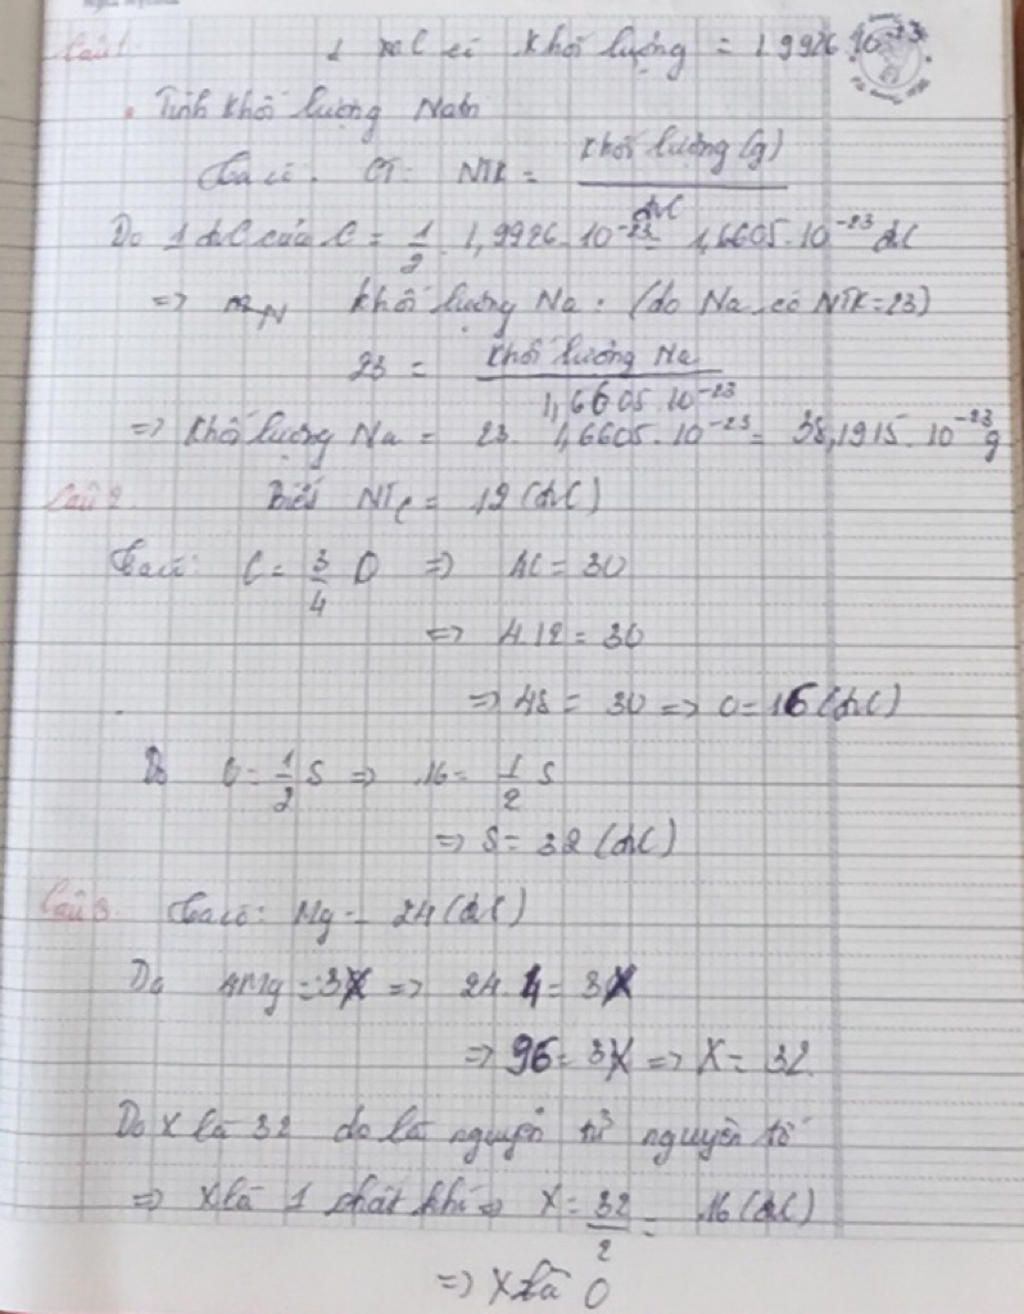 Câu 1. 1 ng C có khối lượng = 1,9926.10⁻²³
. Tính khối lượng Natri
Ta có: CT: NTK = khối lượng (g) / đvC
Do 1 đvC của C = 1/2 . 1,9926.10⁻²³ = 1,6605.10⁻²³ đvC
=> khối lượng Na: (do Na có NTK=23)
23 = khối lượng Na / 1,6605.10⁻²³
=> Khối lượng Na = 23. 1,6605.10⁻²³ = 38,1915.10⁻²³ g
Câu 2. Biết NTC = 12 (đvC)
Ta có: C = 3/4 O => 4C = 3O
=> 4.12 = 3O
=> 48 = 3O => O = 16 (đvC)
Do O = 1/2 S => 16 = 1/2 S
=> S = 32 (đvC)
Câu 3. Ta có: Mg = 24 (đvC)
Do 4Mg = 3X => 24.4 = 3X
=> 96 = 3X => X = 32.
Do X là 32 do là nguyên tử nguyên tố
=> X là 1 chất khí => X = 32/2 = 16 (đvC)
=> X là O